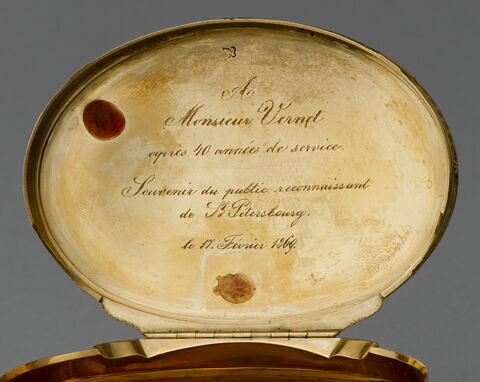 A
Monsieur Vernet
après 40 années de service.
Souvenir du public reconnaissant
de St Pétersbourg.
le 17. Février 1869.